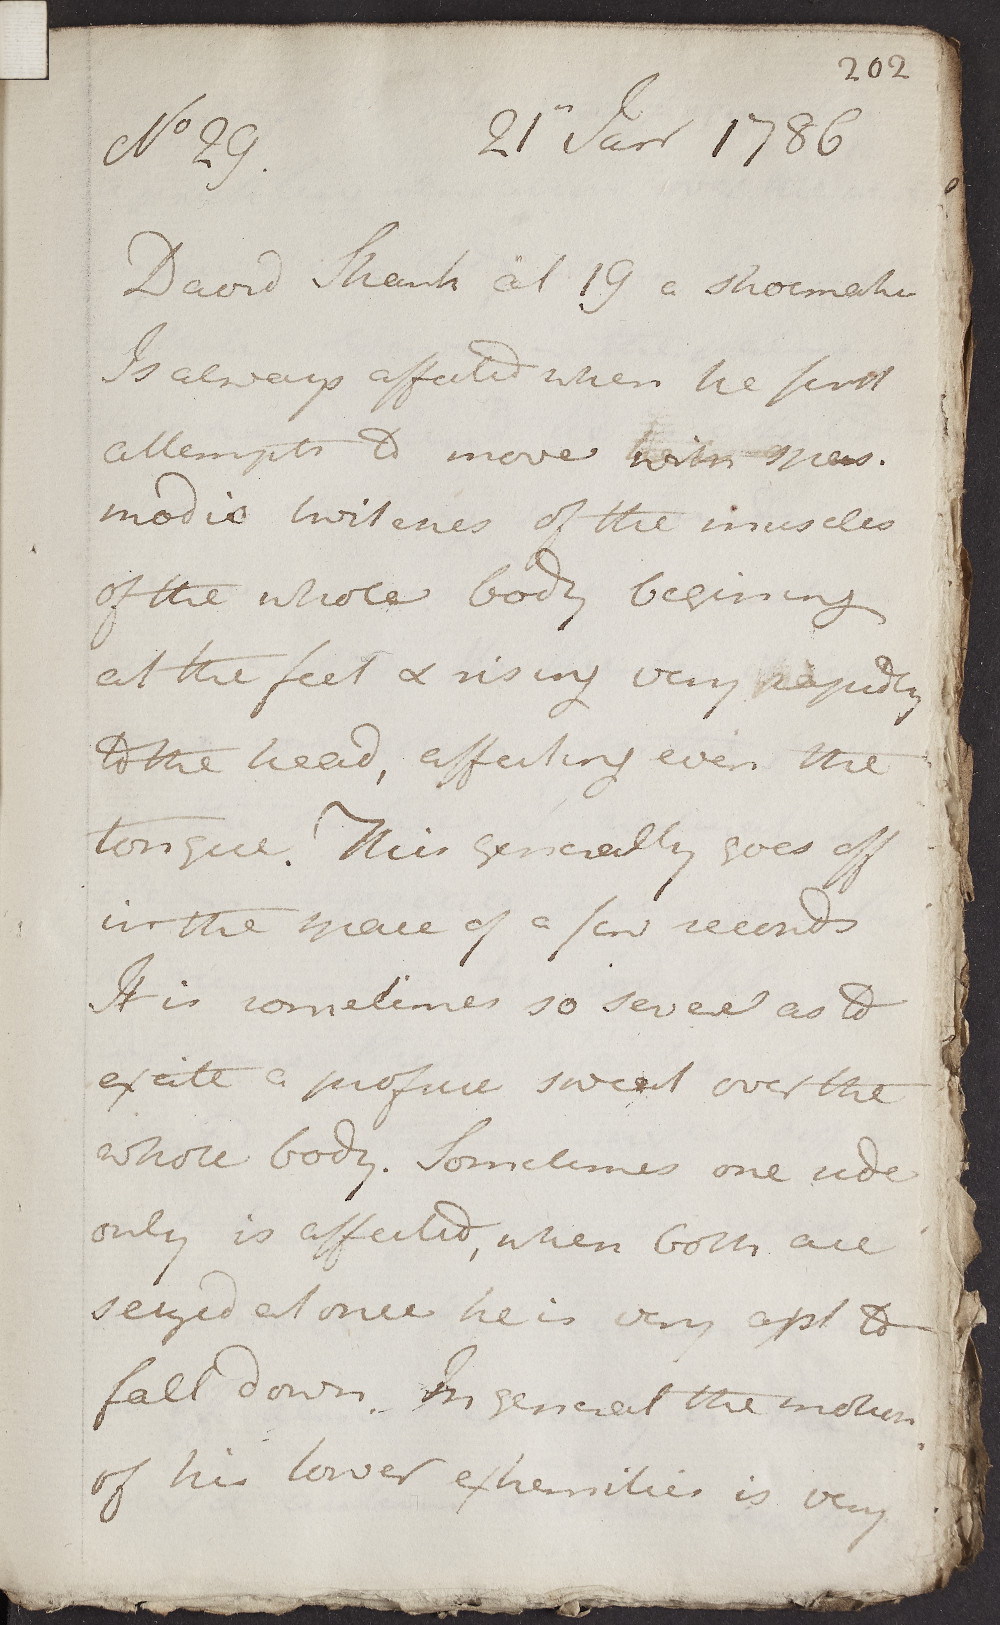 202
No 29. 21st Janr 1786
David Shank æt 19 a shoemaker
Is always affected when he first
attempts to move with spas.
modic twitches of the muscles
of the whole body begining
at the feet & rising very rapidly
to the head, affecting even the
tongue. This generally goes off
in the space of a few seconds
It is sometimes so severe as to
excite a profuse sweat over the
whole body. Sometimes one side
only is affected, when both are
seized at once he is very apt to
fall down. In general the motion
of his lower extremities is very